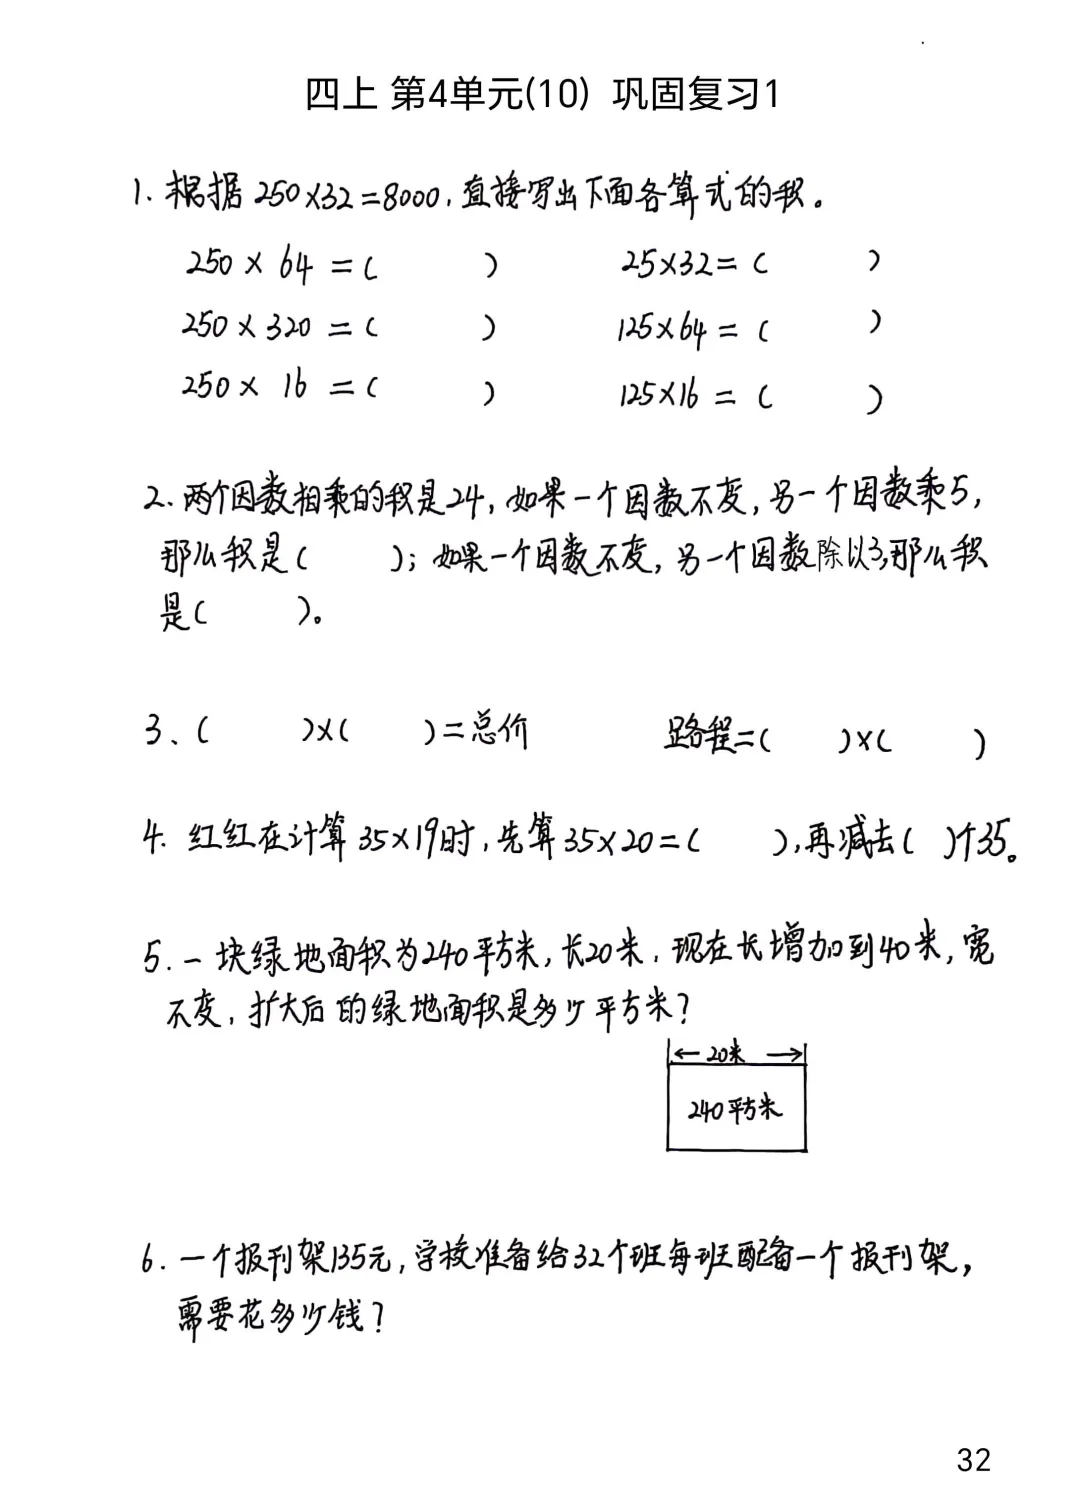 四上 第4单元(10) 巩固复习1
1. 根据250×32=8000,直接写出下面各算式的积。
250×64=( ) 25×32=( )
250×320=( ) 125×64=( )
250×16=( ) 125×16=( )
2、两个因数相乘的积是24,如果一个因数不变,另一个因数乘5,
那么积是( );如果一个因数不变,另一个因数除以3,那么积
是( )。
3、( )×( )=总价 路程=( )×( )
4. 红红在计算35×19时,先算35×20=( ),再减去( )个35。
5.一块绿地面积为240平方米,长20米,现在长增加到40米,宽
不变,扩大后的绿地面积是多少平方米?
←20米→
240平方米
6.一个报刊架135元,学校准备给32个班每班配备一个报刊架,
需要花多少钱?
32